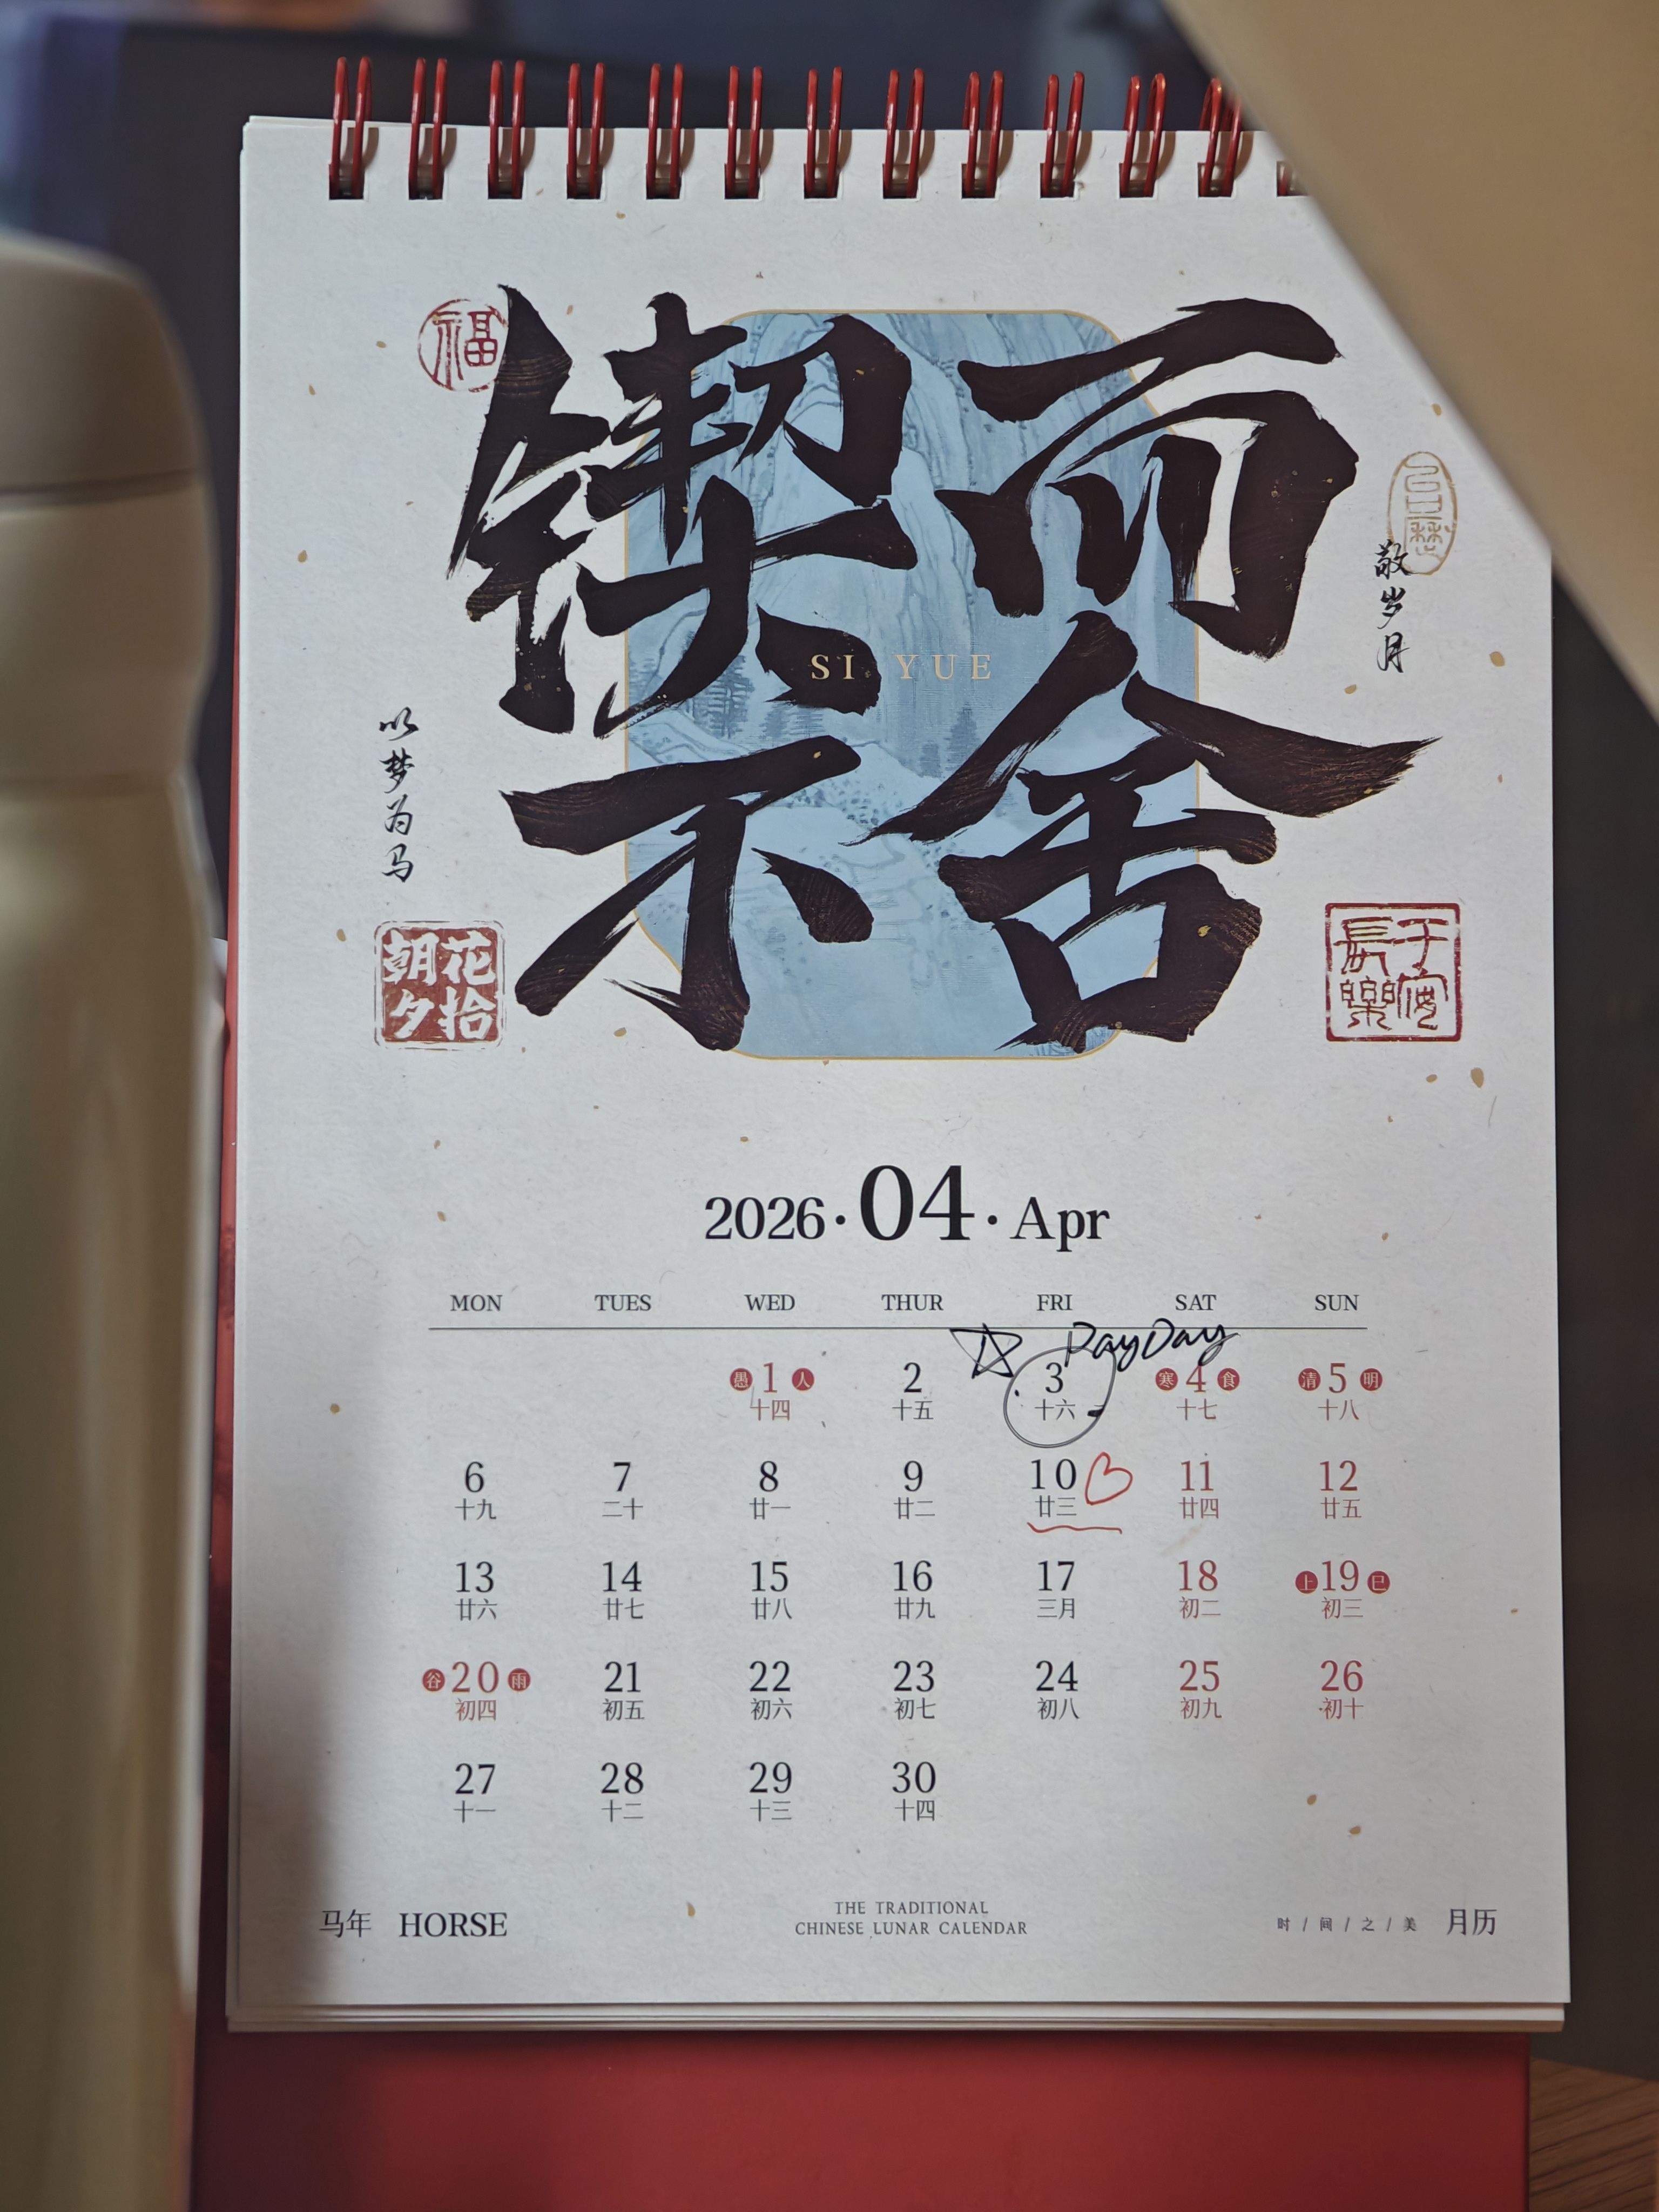 福
锲而
不舍
SI YUE
敬岁月
以梦为马
朝花
夕拾
2026·04·Apr
MON TUES WED THUR FRI SAT SUN
☆ PayDay
愚1人 2 3 寒4食 清5明
十四 十五 十六 十七 十八
6 7 8 9 10 ♡ 11 12
十九 二十 廿一 廿二 廿三 廿四 廿五
13 14 15 16 17 18 上19巳
廿六 廿七 廿八 廿九 三月 初二 初三
谷20雨 21 22 23 24 25 26
初四 初五 初六 初七 初八 初九 初十
27 28 29 30
十一 十二 十三 十四
马年 HORSE
THE TRADITIONAL
CHINESE LUNAR CALENDAR
时/间/之/美 月历